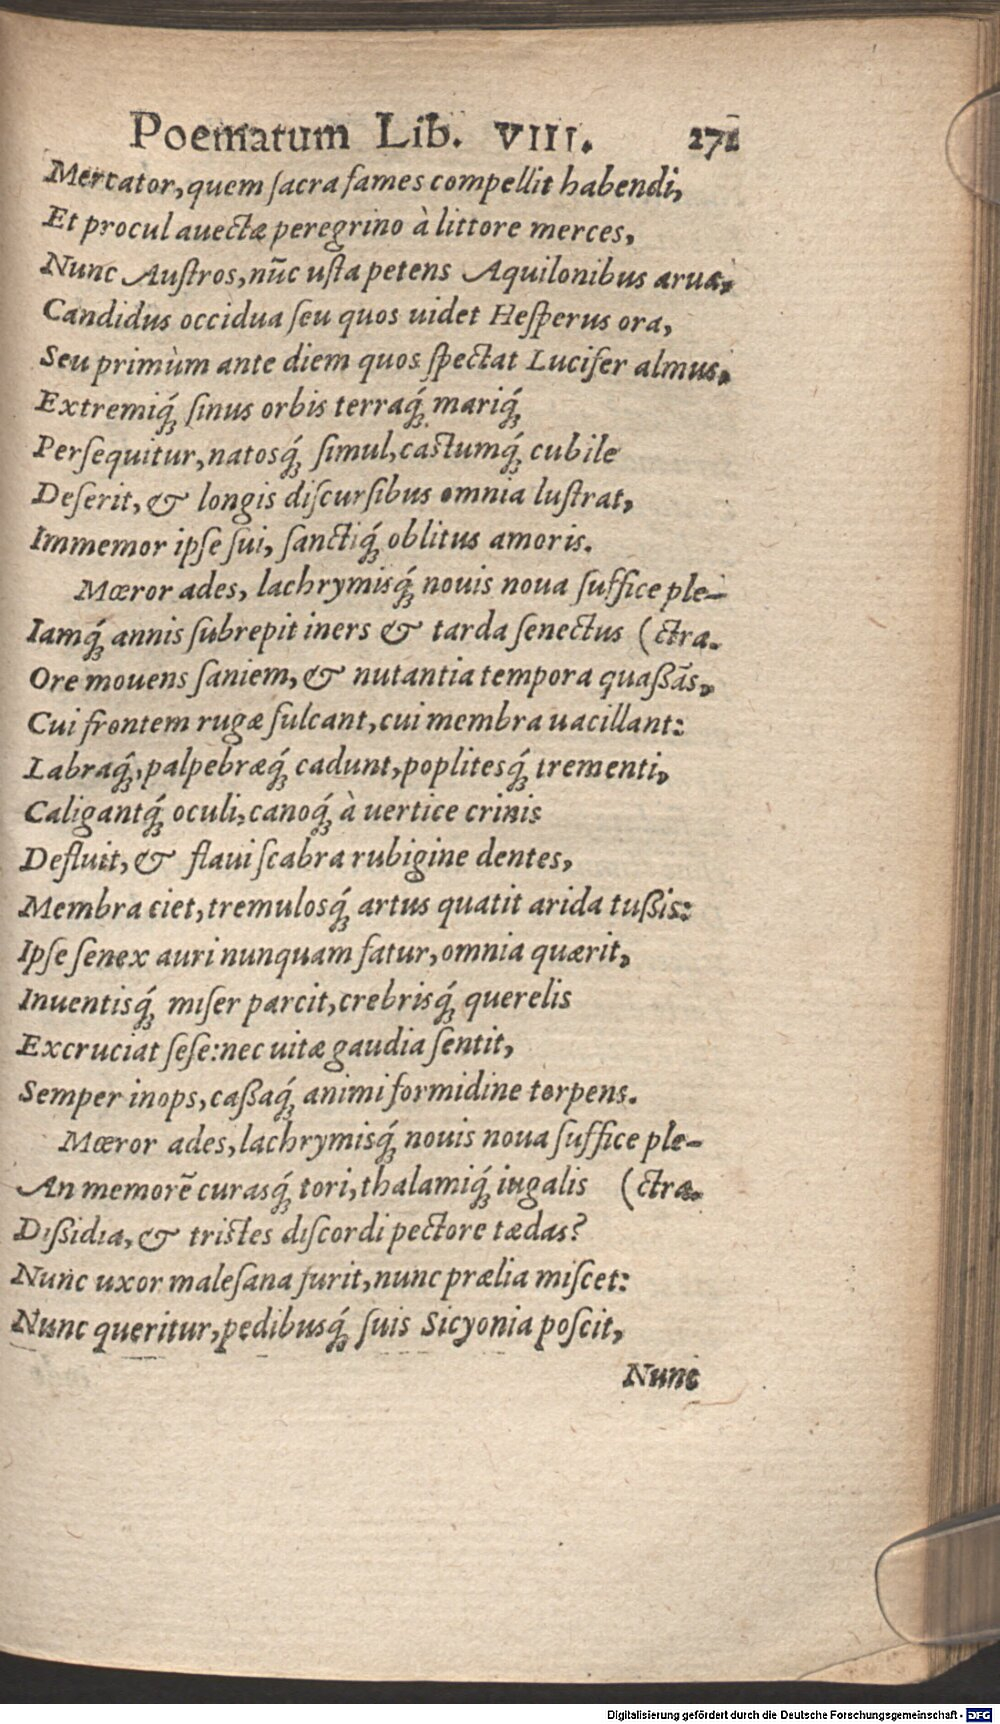 Poematum Lib. VIII. 271
Mercator, quem ſacra fames compellit habendi,
Et procul auectæ peregrino à littore merces,
Nunc Auſtros, nũc uſta petens Aquilonibus arua,
Candidus occidua ſeu quos uidet Heſperus ora,
Seu primùm ante diem quos ſpectat Lucifer almus,
Extremiq́; ſinus orbis terraq́; mariq́;
Perſequitur, natosq́; ſimul, caſtumq́; cubile
Deſerit, & longis diſcurſibus omnia luſtrat,
Immemor ipſe ſui, ſanctiq́; oblitus amoris.
Mœror ades, lachrymisq́; nouis noua ſuffice ple-
Iamq́; annis ſubrepit iners & tarda ſenectus (ctra.
Ore mouens ſaniem, & nutantia tempora quaßãs,
Cui frontem rugæ ſulcant, cui membra uacillant:
Labraq́;, palpebræq́; cadunt, poplitesq́; trementi,
Caligantq́; oculi, canoq́; à uertice crinis
Defluit, & flaui ſcabra rubigine dentes,
Membra ciet, tremulosq́; artus quatit arida tußis:
Ipſe ſenex auri nunquam ſatur, omnia quærit,
Inuentisq́; miſer parcit, crebrisq́; querelis
Excruciat ſeſe: nec uitæ gaudia ſentit,
Semper inops, caßaq́; animi formidine torpens.
Mœror ades, lachrymisq́; nouis noua ſuffice ple-
An memorẽ curasq́; tori, thalamiq́; iugalis (ctra.
Dißidia, & triſtes diſcordi pectore tædas?
Nunc uxor maleſana furit, nunc prælia miſcet:
Nunc queritur, pedibusq́; ſuis Sicyonia poſcit,
Nunc
Digitalisierung gefördert durch die Deutsche Forschungsgemeinschaft - DFG